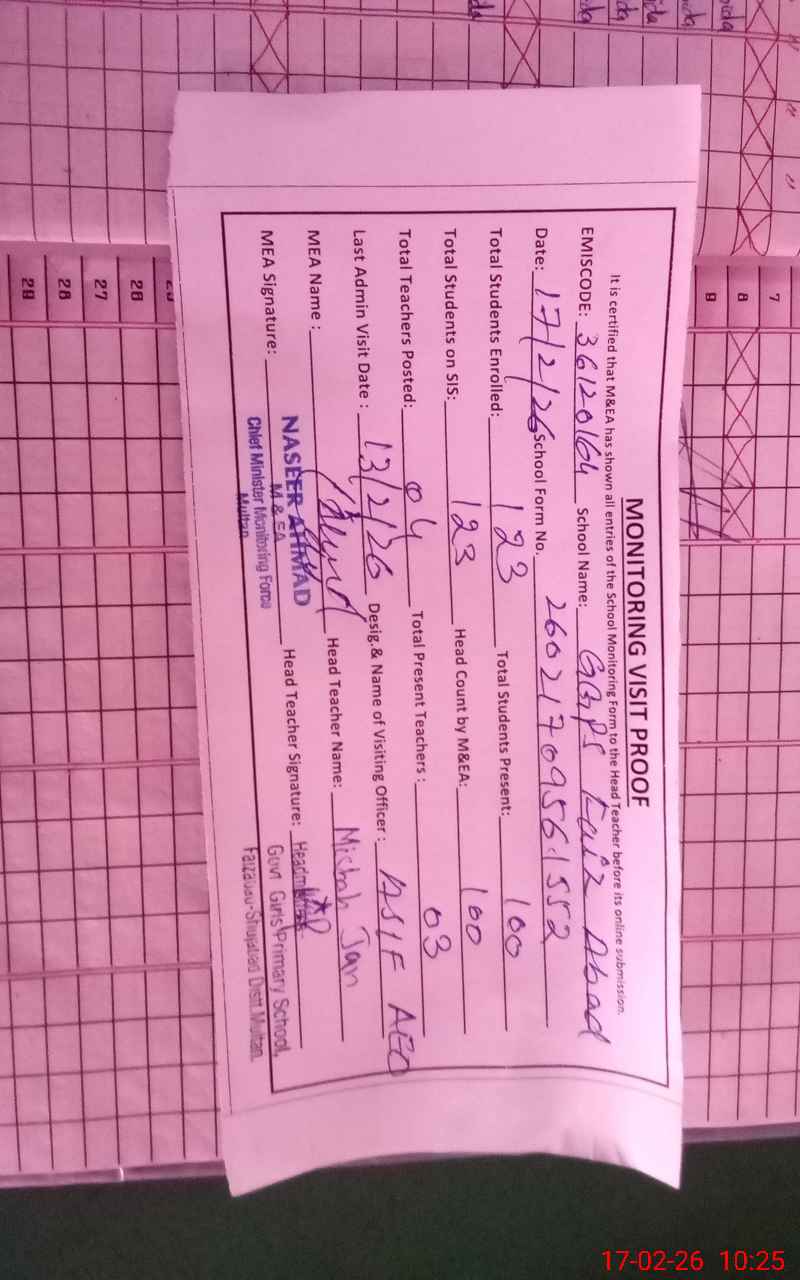 MONITORING VISIT PROOF
It is certified that M&EA has shown all entries of the School Monitoring Form to the Head Teacher before its online submission.
EMISCODE: 36120164 School Name: GGPS Faiz Abad
Date: 17/2/26 School Form No. 26021709561552
Total Students Enrolled: 123 Total Students Present: 100
Total Students on SIS: 123 Head Count by M&EA: 100
Total Teachers Posted: 04 Total Present Teachers : 03
Last Admin Visit Date : 13/2/26 Desig.& Name of Visiting Officer : ASIF AEO
MEA Name : Head Teacher Name: Misbah Jan
MEA Signature: Head Teacher Signature:
NASEER AHMAD
M & EA
Chief Minister Monitoring Force
Multan
Headmistress
Govt Girls Primary School,
Faizabad-Shujabad Distt Multan.
7
8
9
26
27
28
29
17-02-26 10:25